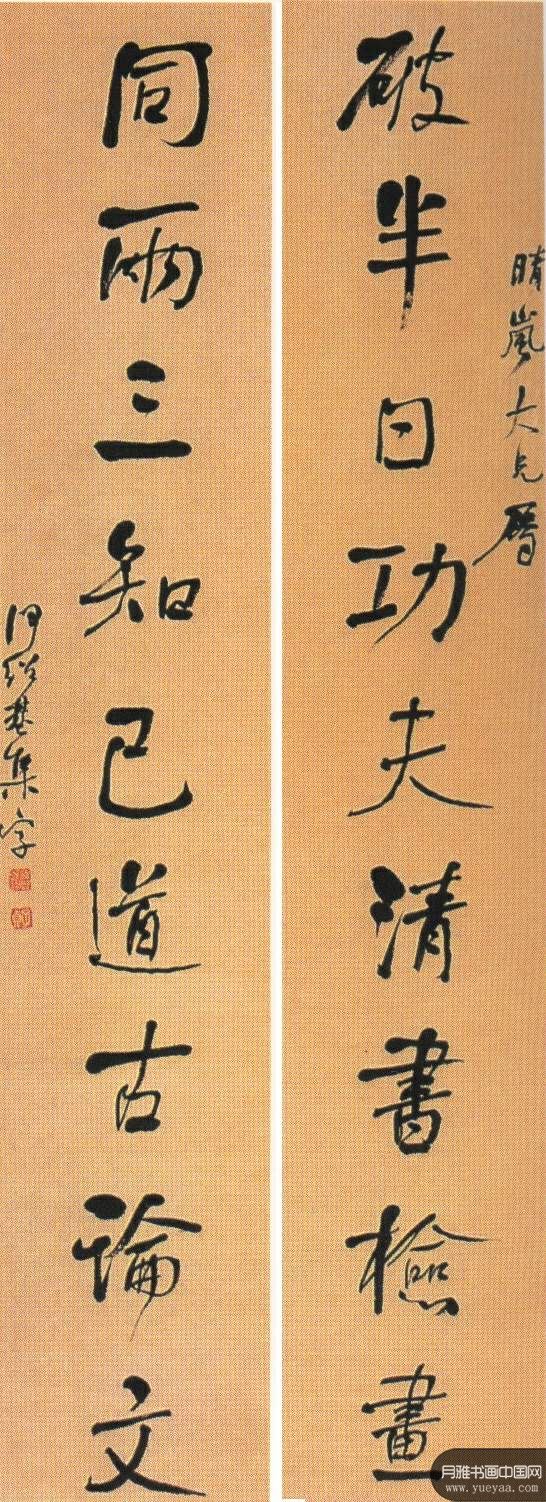 晴嵐大兄屬
破半日功夫清書檢畫
同兩三知己道古論文
伊紹基集字
月雅书画中国网
www.yueyaa.com